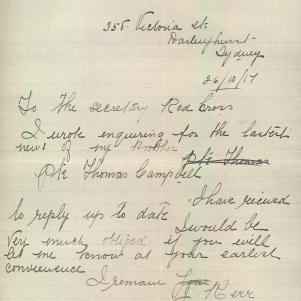 355. Victoria St.
Darlinghurst
Sydney
26/10/17
To the Secretary Red Cross
I wrote enquiring for the lastest
news of my Brother Pte Thomas
Pte Thomas Campbell
I have received
no reply up to date I would be
very much obliged if you will
let me know at your earlist
convienence
I remain
Kerr